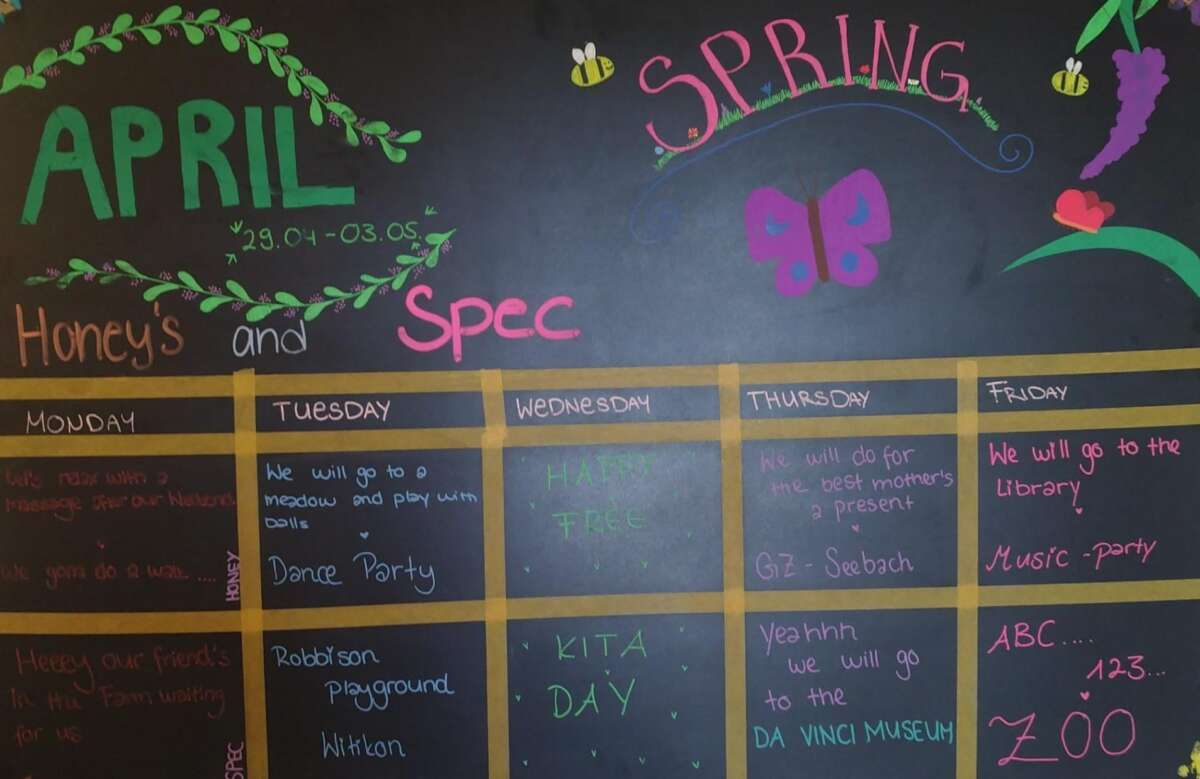 APRIL
29.04 - 03.05.
SPRING
Honey's and Spec
MONDAY
TUESDAY
WEDNESDAY
THURSDAY
FRIDAY
HONEY
Let's relax with a
massage after our Weekend
We gonna do a walk ....
We will go to a
meadow and play with
balls
Dance Party
HAPPY
FREE
We will do for
the best mother's
a present
GZ - Seebach
We will go to the
Library
Music - party
SPEC
Heeey our friend's
in Farm waiting
for us
Robbison
playground
Witikon
KITA
DAY
Yeahhh
we will go
to the
DA VINCI MUSEUM
ABC....
123...
ZOO